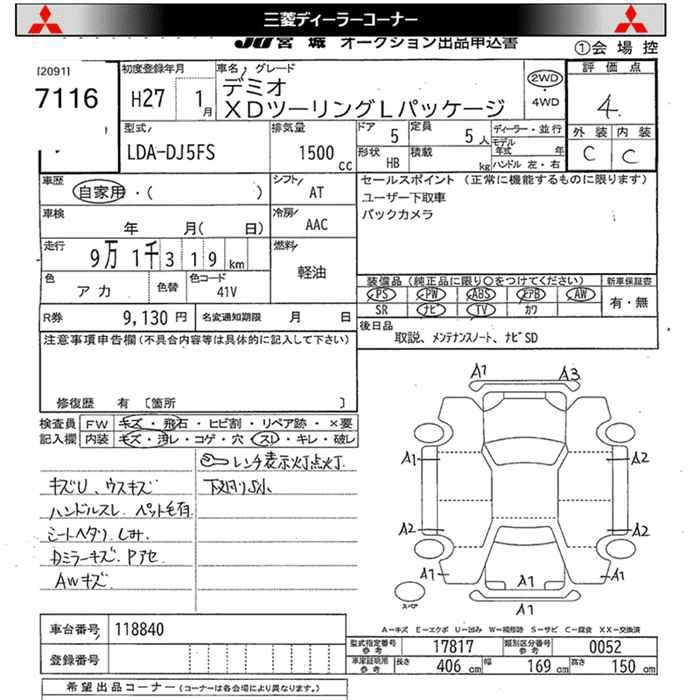 三菱ディーラーコーナー
JU宮城 オークション出品申込書
①会場控
[2091]
7116
初度登録年月
H27 1月
車名/グレード
デミオ
XDツーリングLパッケージ
2WD
・4WD
評価点
4.
外装 内装
C C
型式/
LDA-DJ5FS
排気量
1500cc
ドア 5 定員 5人
形状 HB 積載 kg
ディーラー・並行
モデル年式 年
ハンドル 左・右
車歴
自家用・( )
シフト/
AT
セールスポイント (正常に機能するものに限ります)
ユーザー下取車
バックカメラ
車検
年 月( 日)
冷房/
AAC
走行
9万1千319km
燃料/
軽油
色
アカ
色替
色コード
41V
装備品(純正品に限り○をつけてください)
PS PW ABS エアB AW
SR ナビ TV カワ
新車保証書
有・無
R券 9,130円
名変通知期限 月 日
後日品
取説、メンテナンスノート、ナビSD
注意事項申告欄(不具合内容等は具体的に記入して下さい)
修復歴 有 〔箇所 〕
検査員記入欄
FW キズ・飛石・ヒビ割・リペア跡・×要
内装 キズ・汚レ・コゲ・穴・スレ・キレ・破レ
レンチ表示灯点灯
キズU、ウスキズ 下廻りS小
ハンドルスレ ペット毛有
シートヘタリ しみ
Dミラーキズ Pアセ
AWキズ
A1 A3
A1 A2
A2 A2
A1 A1 A1
A1
スペア
A-キズ E-エクボ U-凹み W-補修跡 S-サビ C-腐食 XX-交換済
車台番号 118840
登録番号
型式指定番号参考 17817
類別区分番号参考 0052
車庫証明用参考 長さ 406cm 幅 169cm 高さ 150cm
希望出品コーナー(コーナーは各会場により異なります。)